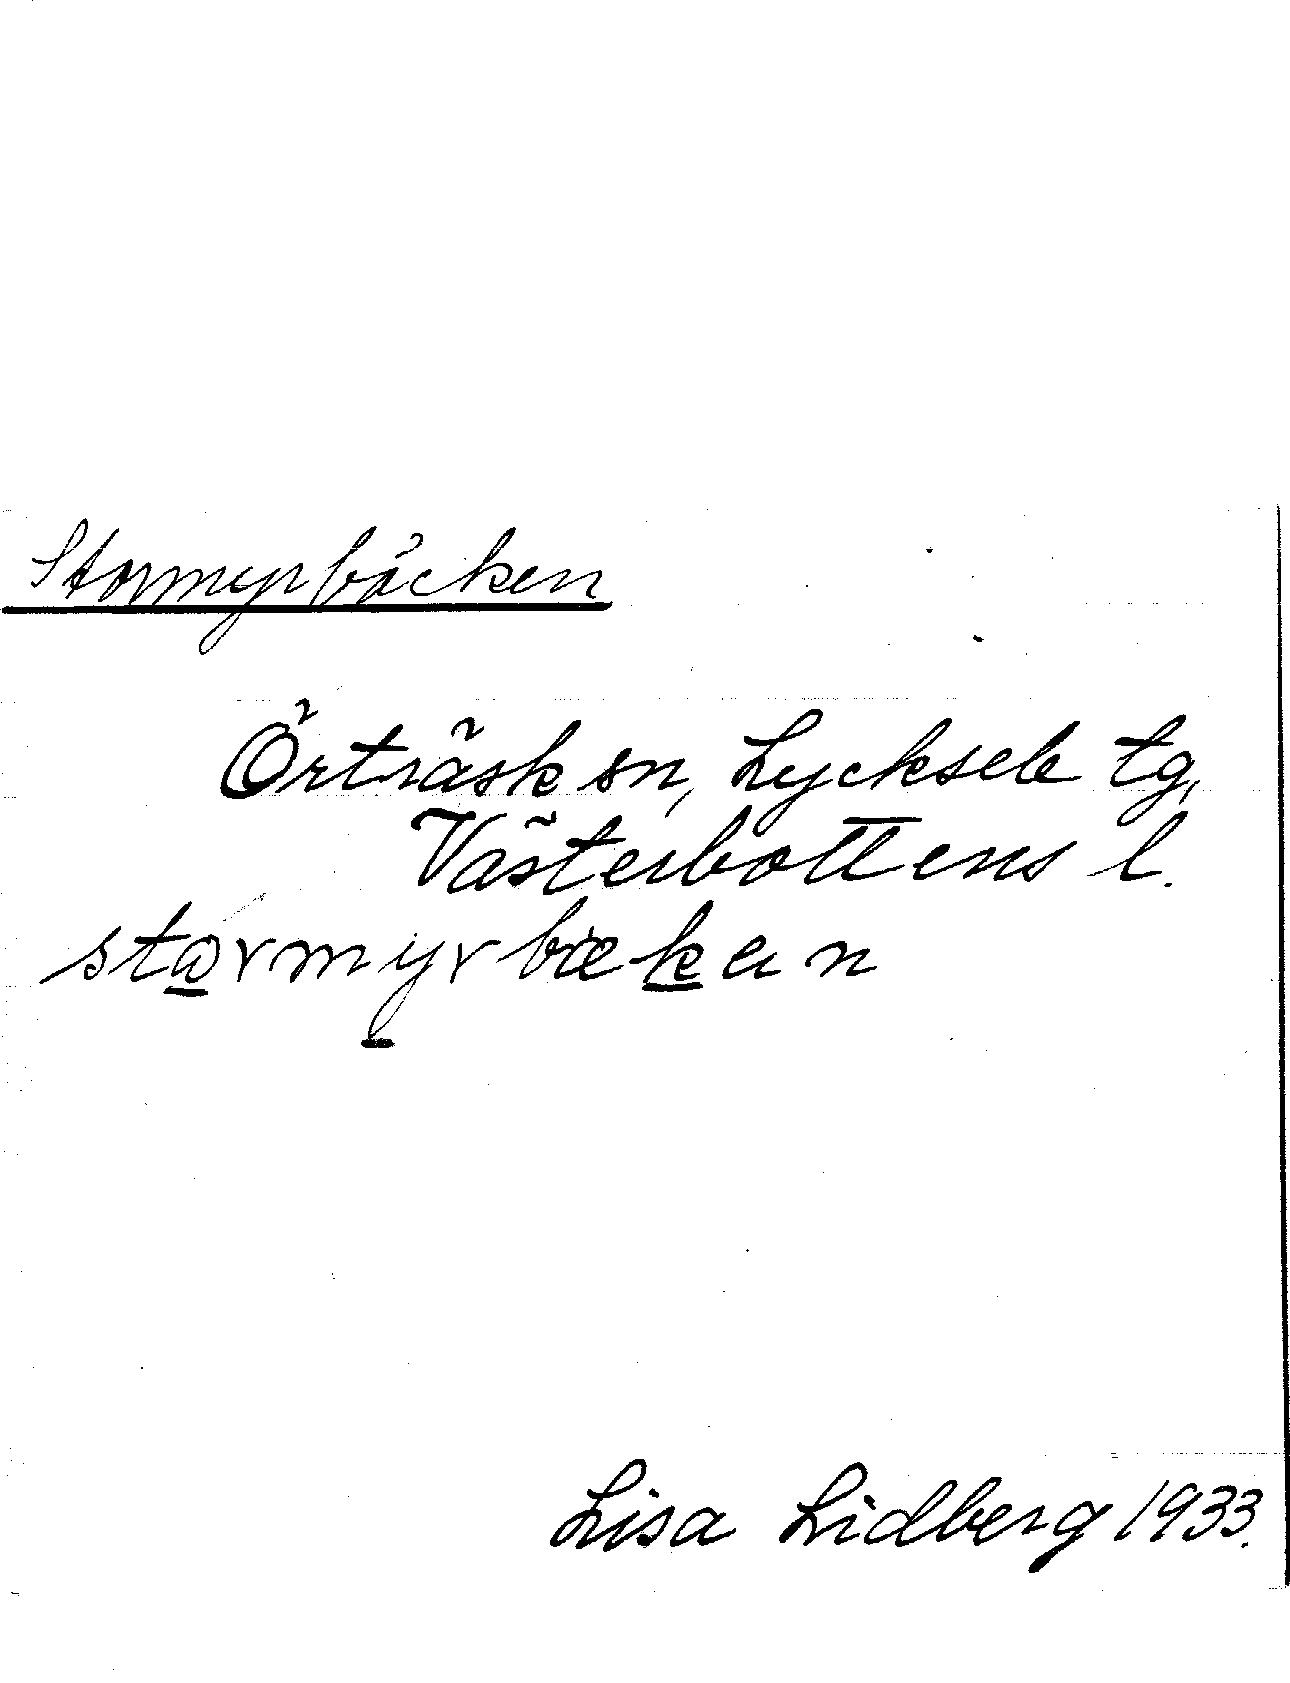 Stormyrbäcken
Örträsk sn, Lycksele tg,
Västerbottens l.
stormyrbækan
Lisa Lidberg 1933.